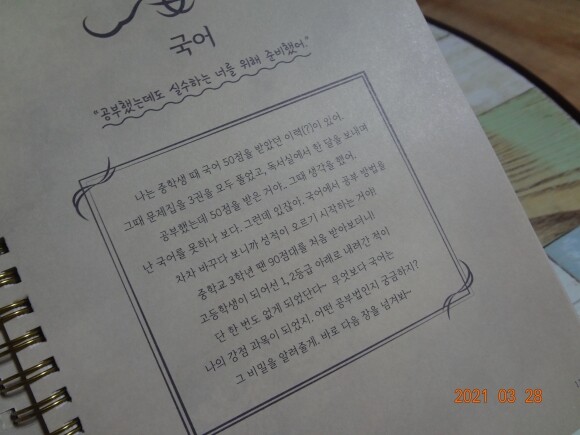 국어
"공부했는데도 실수하는 너를 위해 준비했어."
나는 중학생 때 국어 50점을 받았던 이력(?)이 있어.
그때 문제집을 3권을 모두 풀었고, 독서실에서 한 달을 보내며
공부했는데 50점을 받은 거야.. 그때 생각을 했어.
난 국어를 못하나 보다. 그런데 있잖아. 국어에서 공부 방법을
차차 바꾸다 보니까 성적이 오르기 시작하는 거야!
중학교 3학년 땐 90점대를 처음 받아보더니!
고등학생이 되어선 1, 2등급 아래로 내려간 적이
단 한 번도 없게 되었단다~ 무엇보다 국어는
나의 강점 과목이 되었지. 어떤 공부법인지 궁금하지?
그 비밀을 알려줄게, 바로 다음 장을 넘겨봐~
2021 03 28